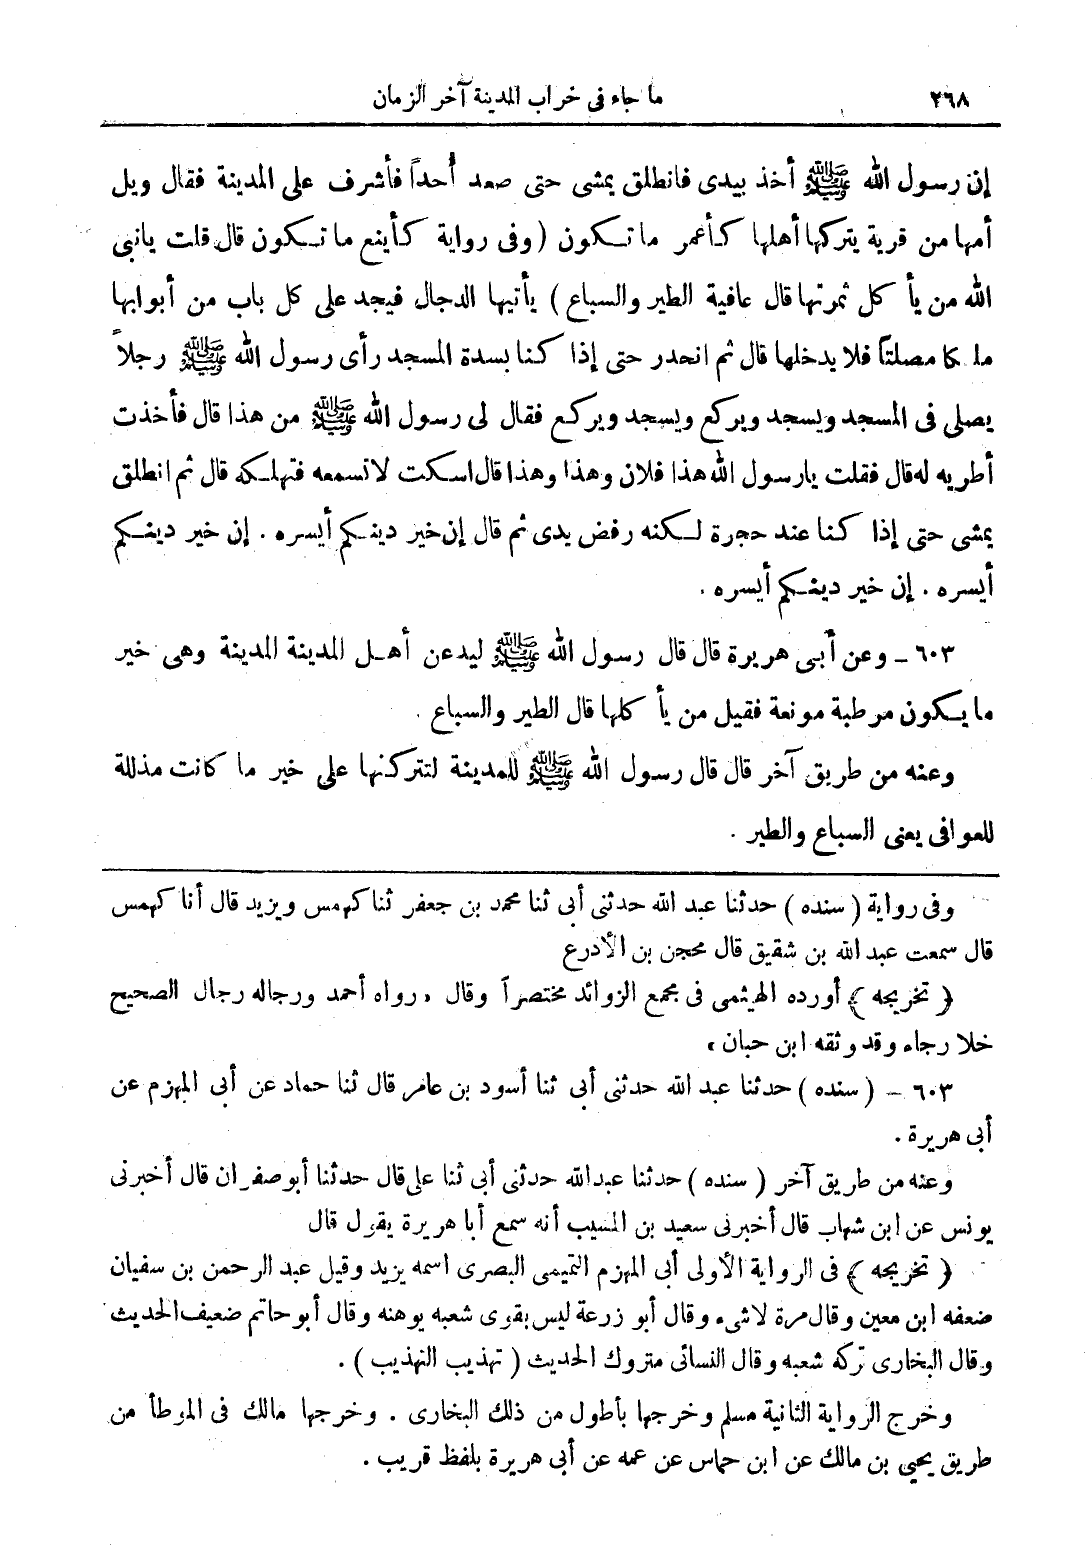 ٢٦٨ ما جاء فى خراب المدينة آخر الزمان
إن رسول الله ﷺ أخذ بيدى فانطلق يمشى حتى صعد أُحداً فأشرف على المدينة فقال ويل
أمها من قرية يتركها أهلها كأعمر ما تكون (وفى رواية كأينع ما تكون قال قلت يانبى
الله من يأكل ثمرتها قال عافية الطير والسباع) يأتيها الدجال فيجد على كل باب من أبوابها
ملكا مصلتاً فلا يدخلها قال ثم انحدر حتى إذا كنا بسدة المسجد رأى رسول الله ﷺ رجلاً
يصلى فى المسجد ويسجد ويركع ويسجد ويركع فقال لى رسول الله ﷺ من هذا قال فأخذت
أطريه له قال فقلت يارسول الله هذا فلان وهذا وهذا قال اسكت لا تسمعه فتهلكه قال ثم انطلق
يمشى حتى إذا كنا عند حجرة لكنه رفض يدى ثم قال إن خير دينكم أيسره . إن خير دينكم
أيسره . إن خير دينكم أيسره .
٦٠٣ ـ وعن أبى هريرة قال قال رسول الله ﷺ ليدعن أهل المدينة المدينة وهى خير
ما يكون مرطبة مونعة فقيل من يأكلها قال الطير والسباع .
وعنه من طريق آخر قال قال رسول الله ﷺ للمدينة لتتركنها على خير ما كانت مذللة
للعوافى يعنى السباع والطير .
وفى رواية (سنده) حدثنا عبد الله حدثنى أبى ثنا محمد بن جعفر ثنا كهمس ويزيد قال أنا كهمس
قال سمعت عبد الله بن شقيق قال محجن بن الأدرع
(تخريجه) أورده الهيثمى فى مجمع الزوائد مختصراً وقال «رواه أحمد ورجاله رجال الصحيح
خلا رجاء وقد وثقه ابن حبان»
٦٠٣ ـ (سنده) حدثنا عبد الله حدثنى أبى ثنا أسود بن عامر قال ثنا حماد عن أبى المهزم عن
أبى هريرة .
وعنه من طريق آخر (سنده) حدثنا عبد الله حدثنى أبى ثنا على قال حدثنا أبو صفران قال أخبرنى
يونس عن ابن شهاب قال أخبرنى سعيد بن المسيب أنه سمع أبا هريرة يقول قال
(تخريجه) فى الرواية الأولى أبى المهزم التميمى البصرى اسمه يزيد وقيل عبد الرحمن بن سفيان
ضعفه ابن معين وقال مرة لاشىء وقال أبو زرعة ليس بقوى شعبه يوهنه وقال أبو حاتم ضعيف الحديث
وقال البخارى تركه شعبه وقال النسائى متروك الحديث (تهذيب التهذيب) .
وخرج الرواية الثانية مسلم وخرجها بأطول من ذلك البخارى . وخرجها مالك فى الموطأ من
طريق يحيى بن مالك عن ابن حماس عن عمه عن أبى هريرة بلفظ قريب .